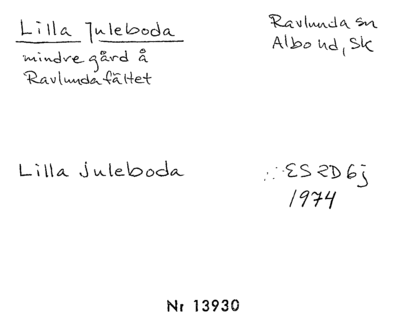 Lilla Juleboda
mindre gård å
Ravlundafältet
Ravlunda sn
Albo hd, Sk
Lilla Juleboda
ES 2D6j
1974
Nr 13930